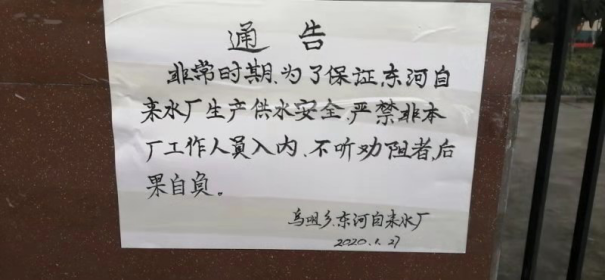 通告
非常时期,为了保证东河自
来水厂生产供水安全,严禁非本
厂工作人员入内,不听劝阻者,后
果自负。
乌咀乡东河自来水厂
2020.1.27